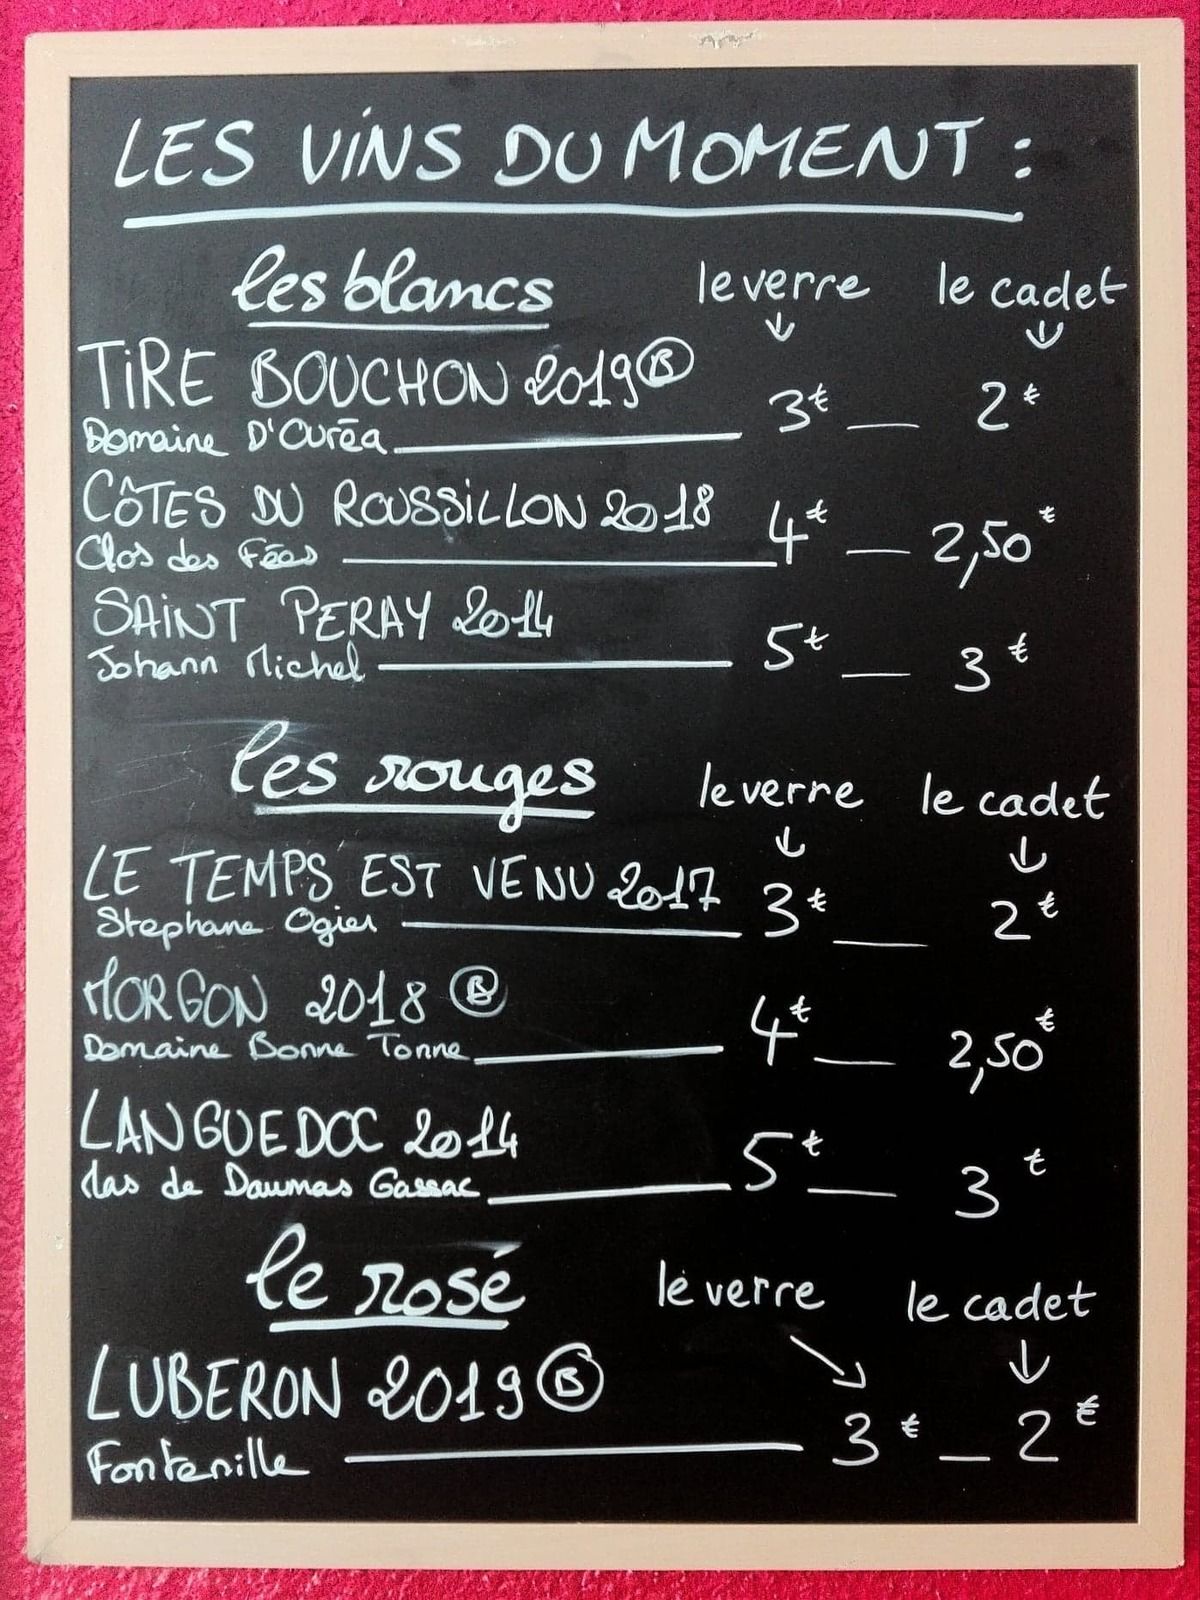 LES VINS DU MOMENT :
les blancs le verre le cadet
TIRE BOUCHON 2019 Ⓑ 3€ 2€
Domaine D'Ouréa
CÔTES DU ROUSSILLON 2018 4€ 2,50€
Clos des Fées
SAINT PERAY 2014 5€ 3€
Johann Michel
les rouges le verre le cadet
LE TEMPS EST VENU 2017 3€ 2€
Stephane Ogier
MORGON 2018 Ⓑ 4€ 2,50€
Domaine Bonne Tonne
LANGUEDOC 2014 5€ 3€
Mas de Daumas Gassac
le rosé le verre le cadet
LUBERON 2019 Ⓑ 3€ 2€
Fontenille